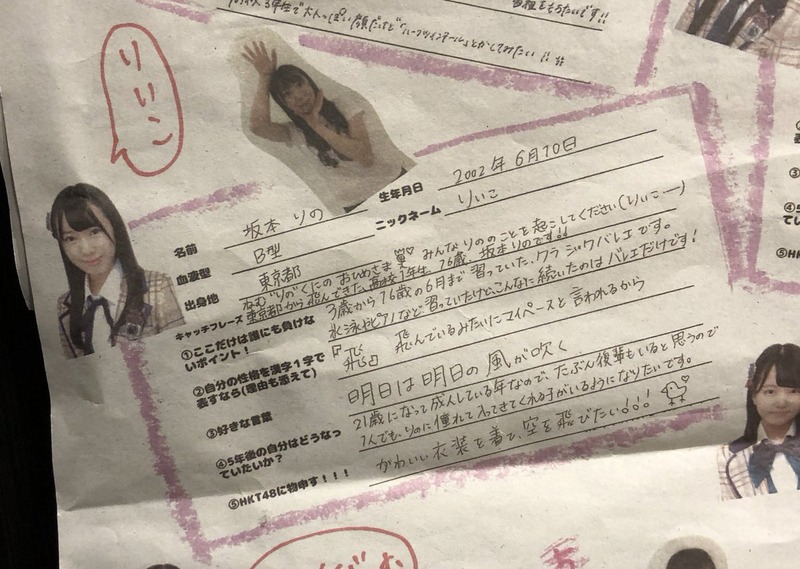 りいこ
名前 坂本 りの
生年月日 2002年6月10日
血液型 B型
ニックネーム りいこ
出身地 東京都
キャッチフレーズ ねむりのくにのおひめさま みんなりののことを起こしてください(りいこー)
東京都から飛んできた、高校1年生、16歳、坂本りのです!!
①ここだけは誰にも負けないポイント! 3歳から16歳の6月まで習っていた、クラシックバレエです。
水泳やピアノなど習っていたけど、こんなに続いたのはバレエだけです!
②自分の性格を漢字1字で表すなら(理由も添えて) 『飛』 飛んでいるみたいにマイペースと言われるから
③好きな言葉 明日は明日の風が吹く
④5年後の自分はどうなっていたいか? 21歳になって成人している年なので、たぶん後輩もいると思うので
1人でも、りのに憧れて入ってきてくれる子がいるようになりたいです。
⑤HKT48に物申す!!! かわいい衣装を着て、空を飛びたい!!!